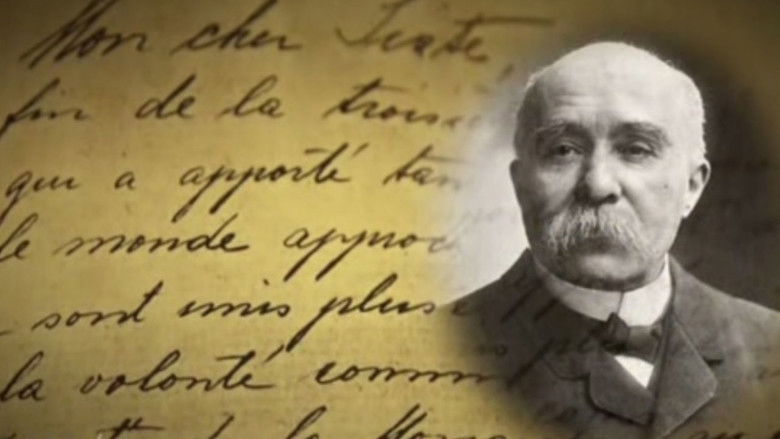 Mon cher Sixte,
fin de la trois
qui a apporté tan
le monde approc
sont unis plus
la volonté comm
de la